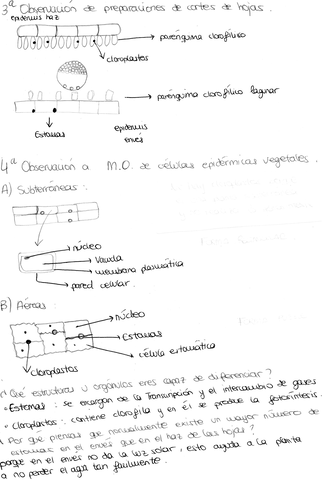 3ª Observación de preparaciones de cortes de hojas.
epidermis haz
parénquima clorofílico
cloroplastos
parénquima clorofílico lagunar
Estomas
epidermis
envés
4ª Observación a M.O. de células epidérmicas vegetales.
A) Subterráneas:
núcleo
Vacuola
membrana plasmática
pared celular.
B) Aéreas:
núcleo
Estomas
célula estomática
cloroplastos
¿Qué estructuras u orgánulos eres capaz de diferenciar?
Estomas: se encargan de la Transcripción y el intercambio de gases
Cloroplastos: contiene clorofila y en él se produce la fotosíntesis.
¿Por qué piensas que normalmente existe un mayor número de
estomas en el envés que en el haz de las hojas?
porque en el envés no da la luz solar, esto ayuda a la planta
a no perder el agua tan fácilmente.